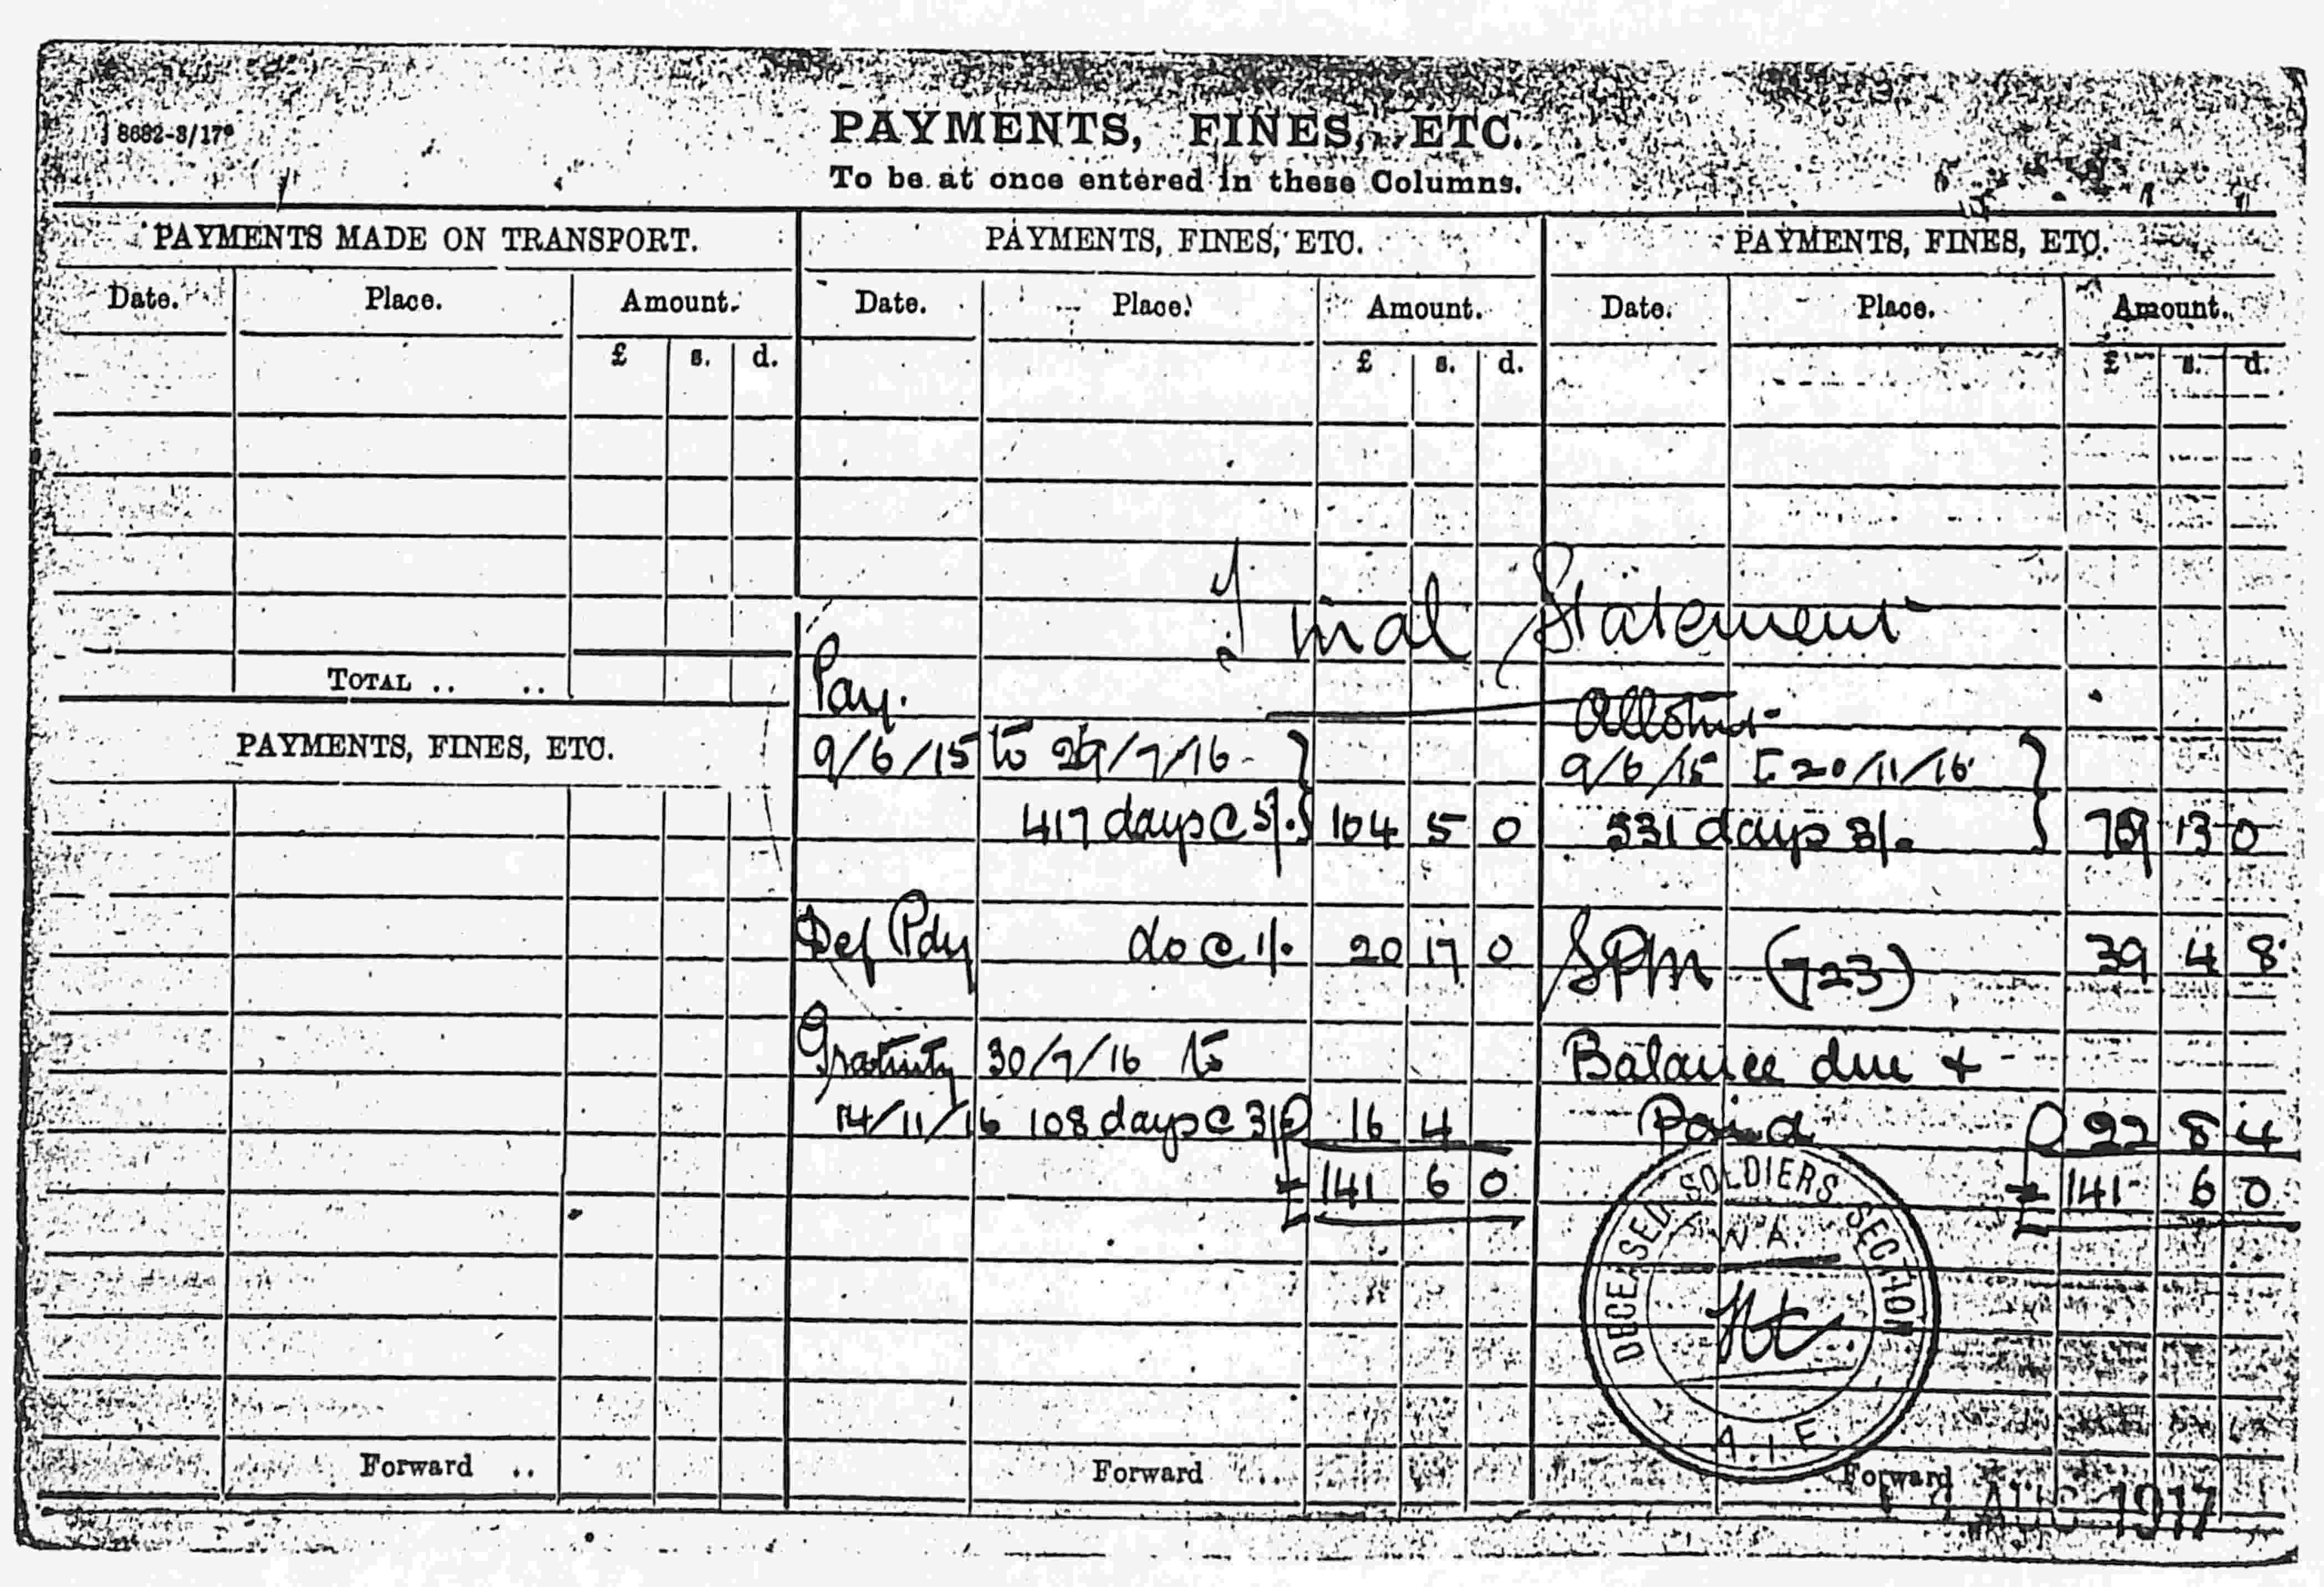 8682-3/17
PAYMENTS, FINES, ETC.
To be at once entered in these Columns.
PAYMENTS MADE ON TRANSPORT.
Date. Place. Amount.
£ s. d.
TOTAL .. ..
PAYMENTS, FINES, ETC.
Forward ..
PAYMENTS, FINES, ETC.
Date. Place. Amount.
£ s. d.
Final Statement
Pay.
9/6/15 to 29/7/16
417 days @ 5/- 104 5 0
Def Pay do @ 1/- 20 17 0
Gratuity 30/7/16 to
14/11/16 108 days @ 3/- 16 4
£ 141 6 0
Forward ..
PAYMENTS, FINES, ETC.
Date. Place. Amount.
£ s. d.
Allotmt
9/6/15 to 20/11/16
531 days 3/- 79 13 0
SPM (723) 39 4 8
Balance due +
Paid 22 8 4
£ 141 6 0
DECEASED SOLDIERS SECTION
W.A.
A.I.F.
Forward
AUG 1917